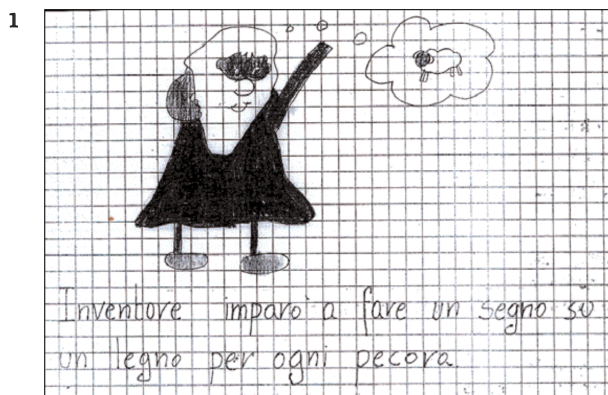 1
Inventore imparò a fare un segno su
un legno per ogni pecora.